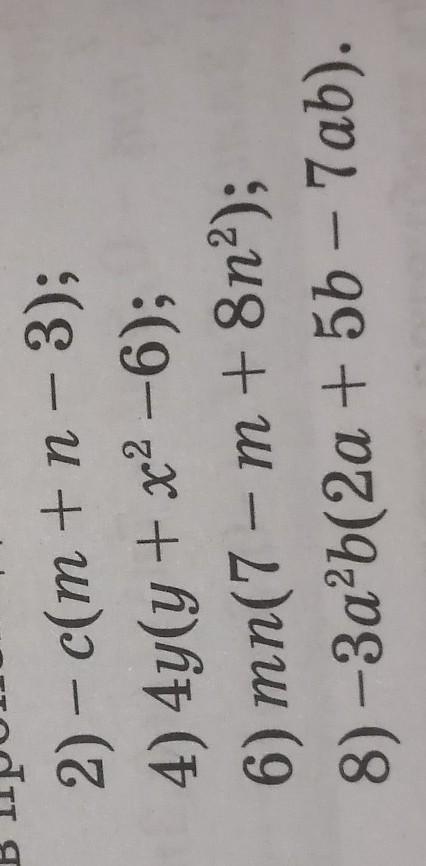 2) – c(m + n – 3);
4) 4y(y + x² –6);
6) mn(7 – m + 8n²);
8) –3a²b(2a + 5b – 7ab).